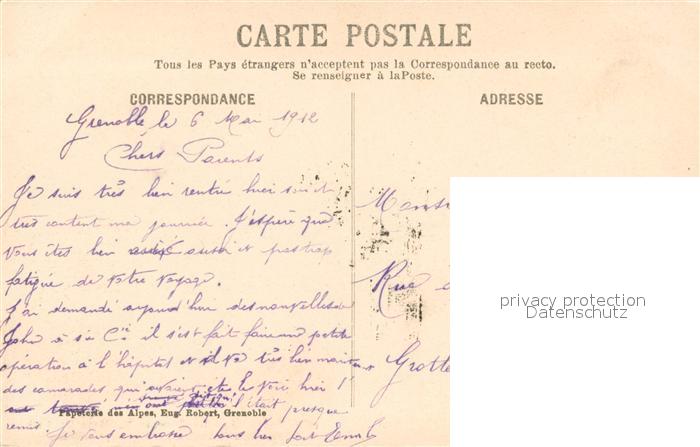 CARTE POSTALE
Tous les Pays étrangers n'acceptent pas la Correspondance au recto.
Se renseigner à la Poste.
CORRESPONDANCE
ADRESSE
Grenoble, le 6 Mai 1912
Chers Parents
Je suis très bien rentré hier soir et
très content ma journée. J'espère que
vous êtes bien aussi et pas trop
fatigué de votre voyage.
J'ai demandé aujourd'hui des nouvelles de
à sa Cie il s'est fait faire une petite
opération à l'hôpital et il va très bien
des camarades qui avaient été le voir hier
l'était presque
Je vous embrasse tous bien fort
Papeterie des Alpes, Eug. Robert, Grenoble
Rue
privacy protection
Datenschutz